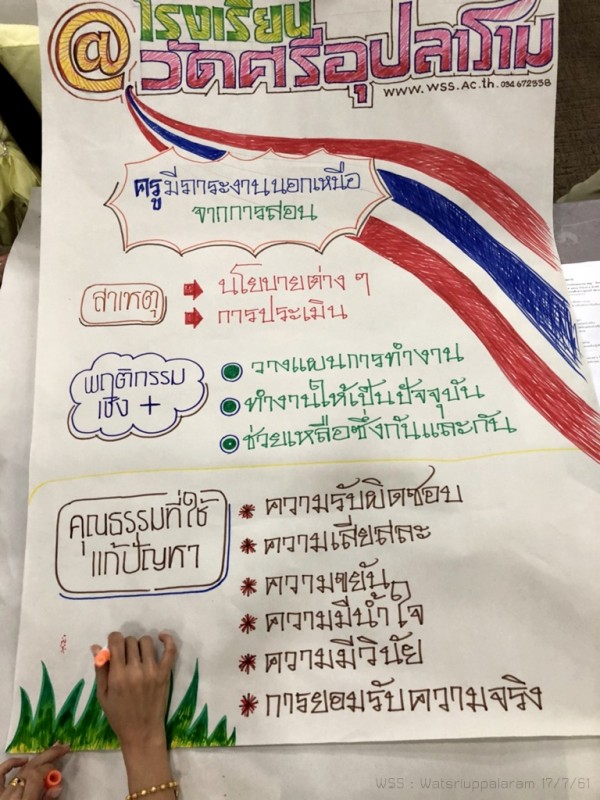 @ โรงเรียน
วัดศรีอุปลาราม
www.wss.ac.th. 034 672338
ครูมีภาระงานนอกเหนือ
จากการสอน
สาเหตุ
นโยบายต่าง ๆ
การประเมิน
พฤติกรรม
เชิง +
วางแผนการทำงาน
ทำงานให้เป็นปัจจุบัน
ช่วยเหลือซึ่งกันและกัน
คุณธรรมที่ใช้
แก้ปัญหา
ความรับผิดชอบ
ความเสียสละ
ความขยัน
ความมีน้ำใจ
ความมีวินัย
การยอมรับความจริง
WSS : Watsriuppalaram 17/7/61